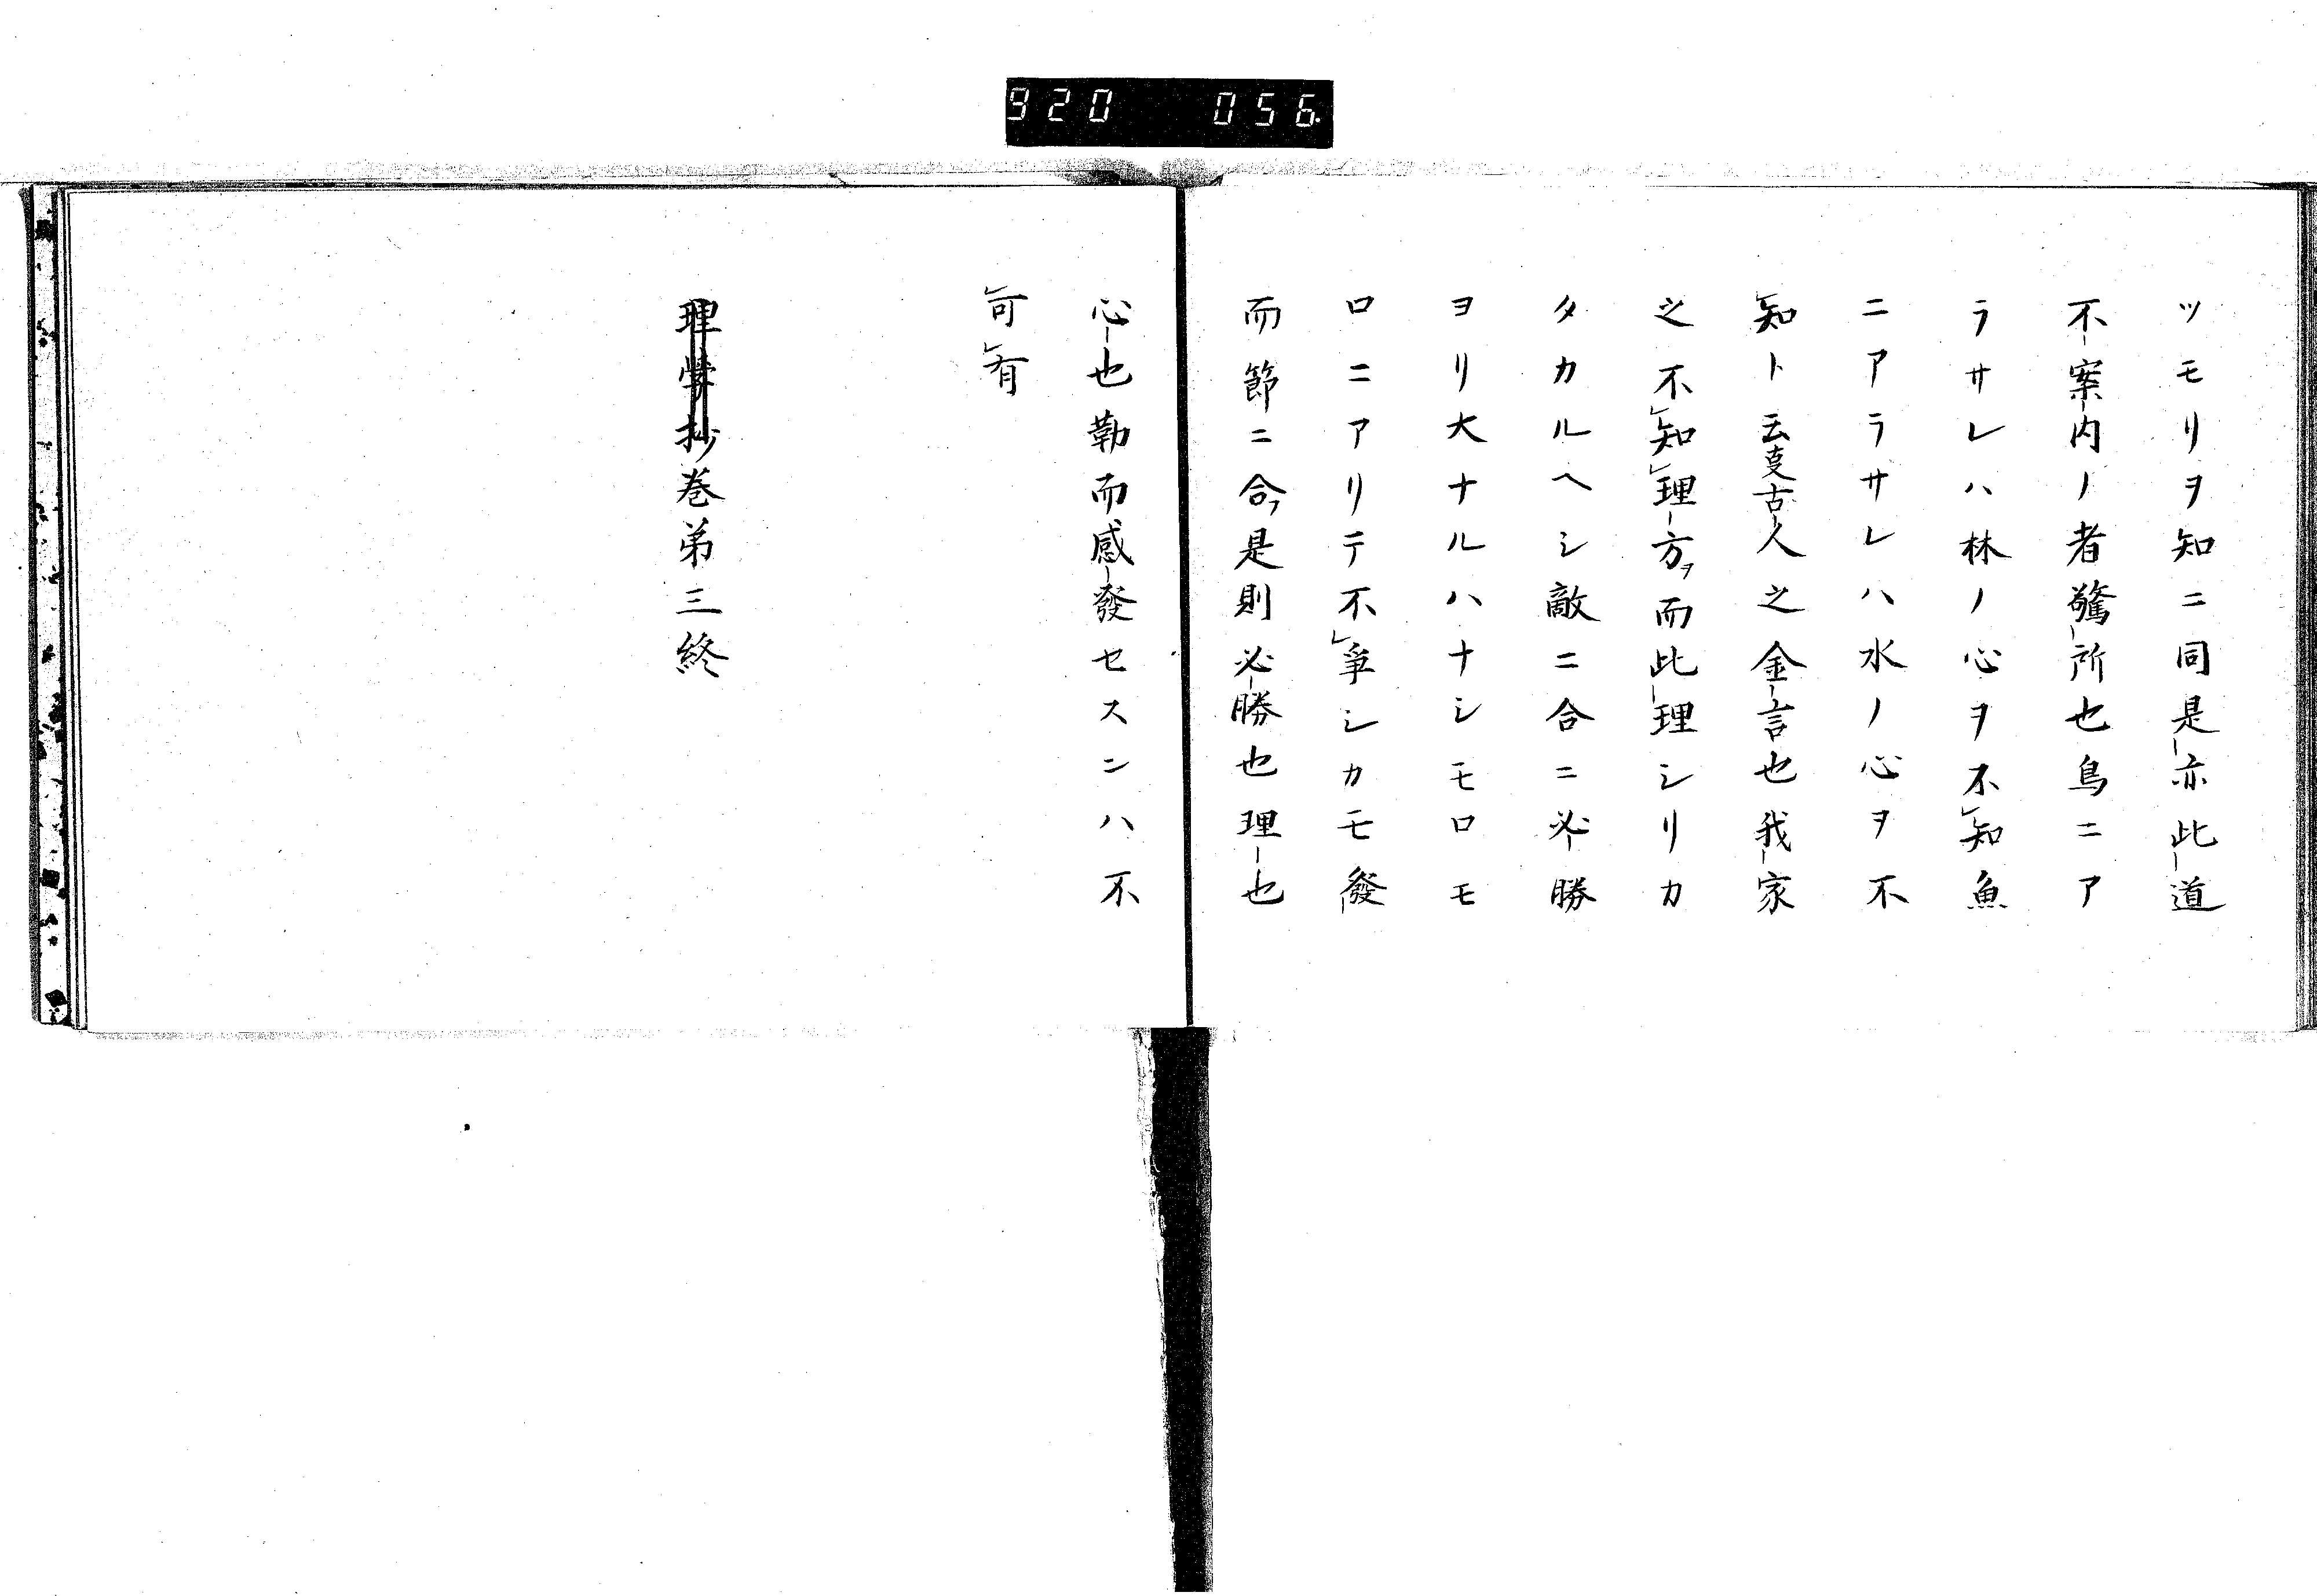 920 056
ツモリヲ知ニ同是亦此道
不案内ノ者驚所也鳥ニア
ラサレハ林ノ心ヲ不知魚
ニアラサレハ水ノ心ヲ不
知ト云㕝古人之金言也我家
之不知理方ヲ而此理シリカ
タカルヘシ敵ニ合ニ必勝
ヲリ大ナルハナシモロモ
ロニアリテ不爭シカモ發
而節ニ合フ是則必勝也理也
心也勤而感發セスンハ不
可有
理學抄巻第三終